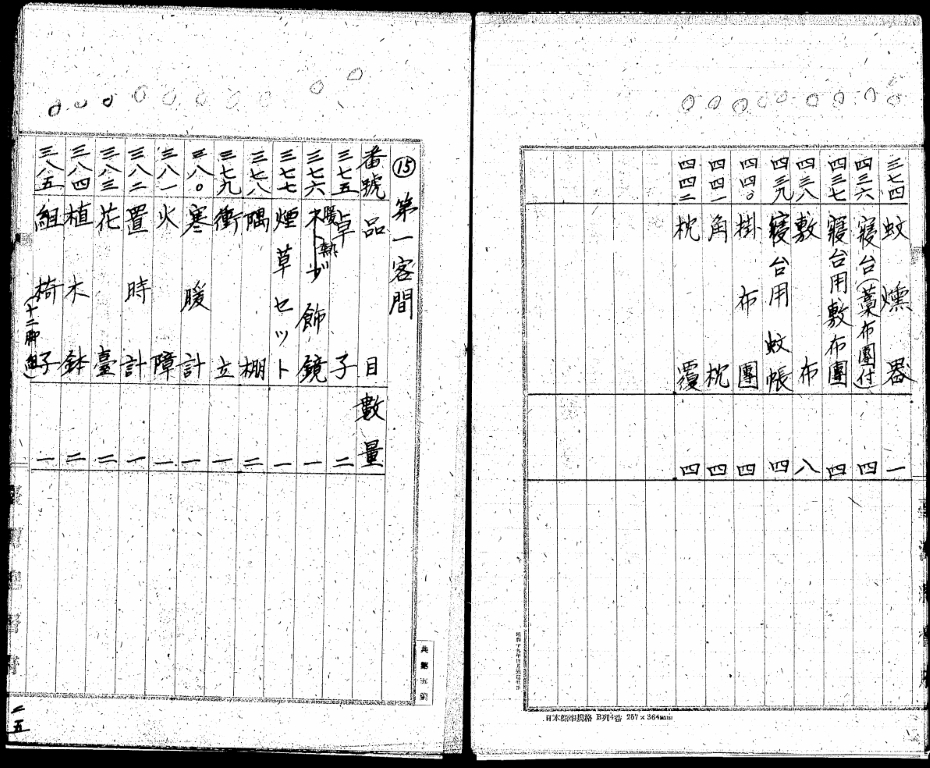 三七四 蚊燻器 一
四三六 寝台(藁布團付) 四
四三七 寝台用敷布團 四
四三八 敷布 八
四三九 寝台用蚊帳 四
四四〇 掛布團 四
四四一 角枕 四
四四二 枕覆 四
日本標準規格 B列4番 257×364mm
⑮ 第一客間
番號 品目 數量
三七五 卓子 二
三七六 飾鏡 一
三七七 煙草セット 一
三七八 隅棚 二
三七九 衝立 一
三八〇 寒暖計 一
三八一 火障 一
三八二 置時計 一
三八三 花臺 二
三八四 植木鉢 二
三八五 組椅子(十二脚組) 一
二五